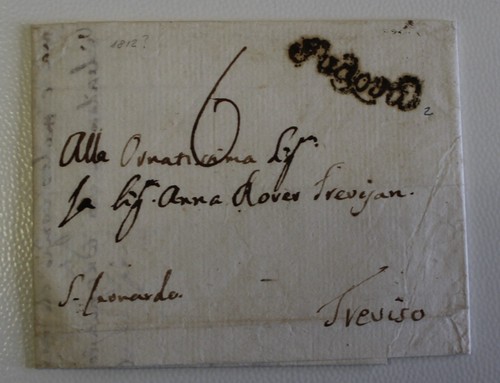 1812?
Padova
2
6
Alla Ornatissima Sig.ª
la Sig.ª Anna Rover Trevisan.
S. Leonardo.
Treviso